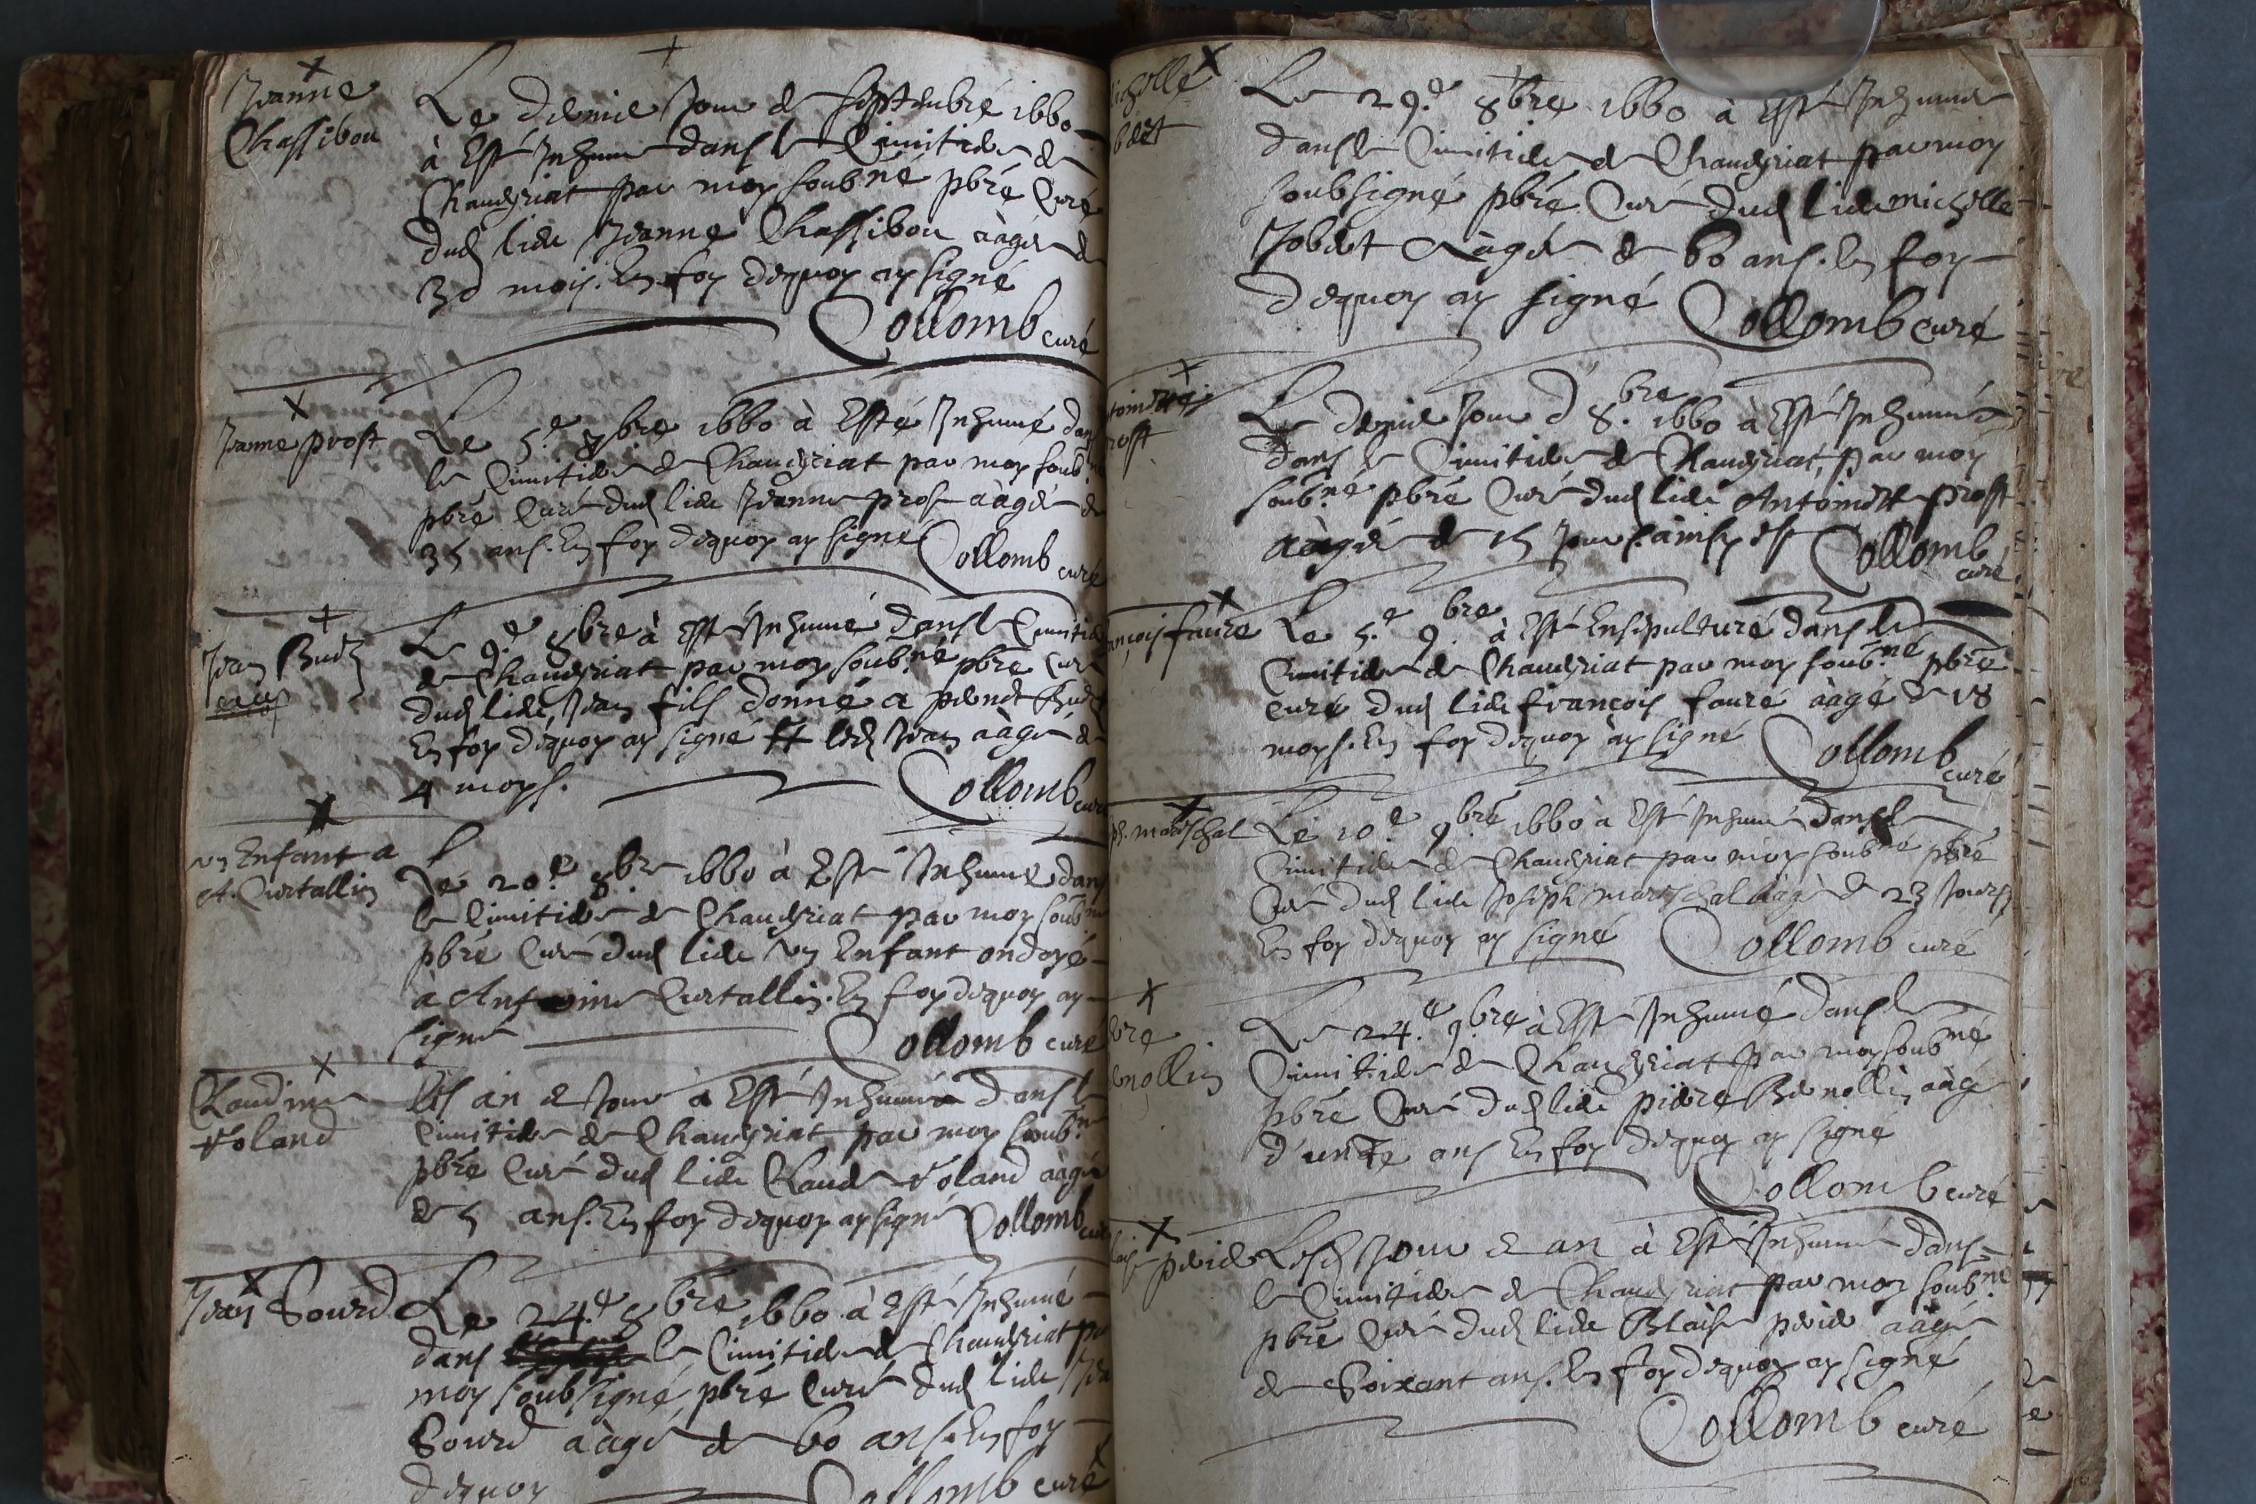 Jeanne
Chassibou
Le dernie Jour de septembre 1660
à Esté Inhumé dans le Cimitiere de
Chaveyriat par moy soubné pbre Curé
dud lieu Jeanne Chassibou aàgée de
30 mois. En foy dequoy ay signé
Collomb curé
Jeanne prost
Le 5.e 8bre 1660 à Esté Inhumé dans
le Cimitiere de Chaveyriat par moy soub.né
pbre Curé dud lieu Jeanne prost aàgée de
35 ans. En foy dequoy ay signé
Collomb curé
Jean
Le 9.e 8bre à Esté Inhumé dans le Cimitiere
de Chaveyriat par moy soub.né pbre Curé
dud lieu, Jean fils donné a
En foy dequoy ay signé led Jean aàgé de
4 moys.
Collomb curé
un Enfant a
A. Curtallin
Le 20.e 8bre 1660 à Esté Inhumé dans
le Cimitiere de Chaveyriat par moy soubné
pbre Curé dud lieu un Enfant ondoyé
à Antoine Curtallin. En foy dequoy ay
signé
Collomb curé
Claudine
Voland
Lés an et Jour à Esté Inhumée dans le
Cimitiere de Chaveyriat par moy soub.né
pbre Curé dud lieu Claude Voland aàgée
de 5 ans. En foy dequoy ay signé
Collomb curé
Jean Sourd
Le 24.e 8bre 1660 à Esté Inhumé
dans le Cimitiere de Chaveyriat par
moy soubsigné, pbre Curé dud lieu Jean
Sourd aàgé de 60 ans. En foy
dequoy
Collomb curé
Michelle
Le 29.e 8bre 1660 à Esté Inhumée
dans le Cimitiere de Chaveyriat par moy
soubsigné pbre Curé dud lieu michelle
Jobdet aàgée de 60 ans. En foy
dequoy ay signé
Collomb curé
prost
Le dernie Jour d'8.bre 1660 à Esté Inhumée
dans le Cimitiere de Chaveyriat, par moy
soub.né pbre Curé dud lieu Antoinette prost
aàgée de 15 Jours. ainsy est
Collomb curé
françois faure
Le 5.e 9.bre à Esté Ensepulturé dans le
Cimitiere de Chaveyriat par moy soub.né pbre
curé dud lieu françois faure aàgé de 18
moys. En foy dequoy ay signé
Collomb curé
ph. mareschal
Le 10.e 9bre 1660 à Esté Inhumé dans le
Cimitiere de Chaveyriat par moy soubné pbre
Curé dud lieu Joseph mareschal aàgé de 23 Jours
En foy dequoy ay signé
Collomb curé
Le 24.e 9.bre à Esté Inhumé dans le
Cimitiere de Chaveyriat par moy soubné
pbre Curé dud lieu pierre Renollin aàgé
ans En foy dequoy ay signé
Collomb curé
Lesd Jour et an à Esté Inhumé dans
le Cimitiere de Chaveyriat par moy soub.né
pbre Curé dud lieu Blaise aàgé
de Soixant ans. En foy dequoy ay signé
Collomb curé